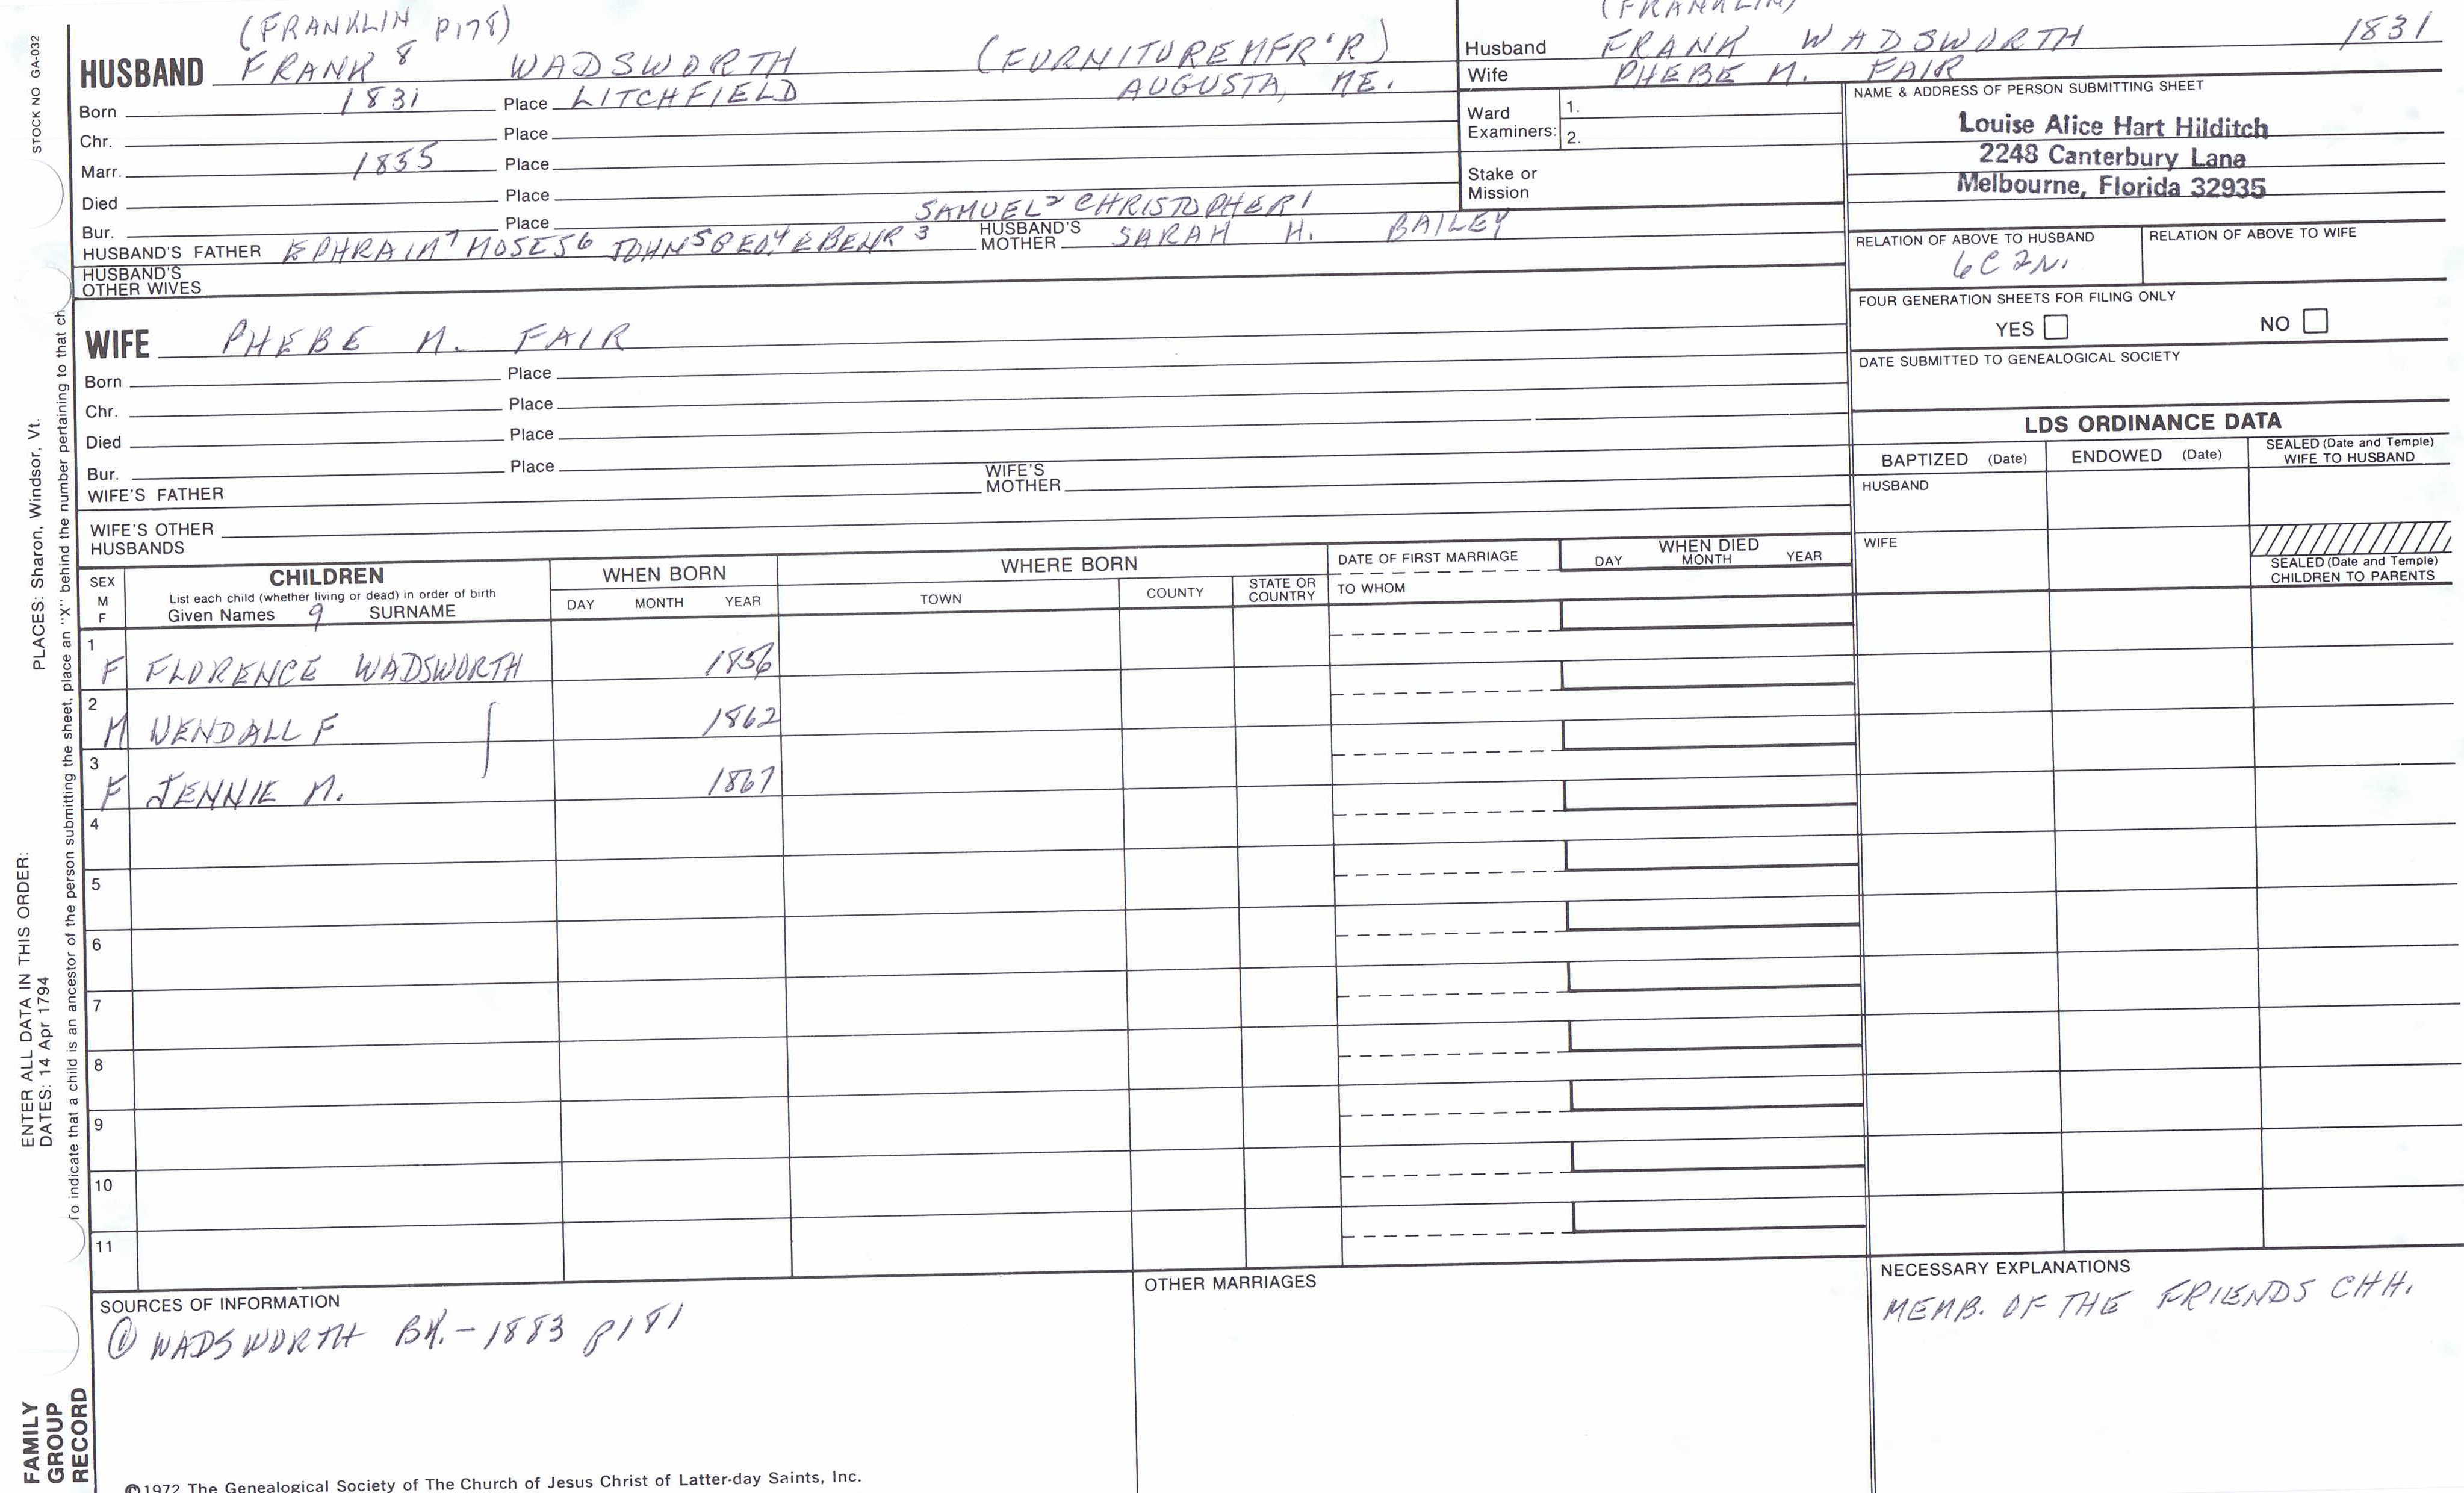 (FRANKLIN P178)
HUSBAND FRANK 8 WADSWORTH (FURNITURE MFR'R)
Born 1831 Place LITCHFIELD AUGUSTA, ME.
Chr. Place
Marr. 1855 Place
Died Place
Bur. Place SAMUEL 2 CHRISTOPHER 1
HUSBAND'S FATHER EPHRAIM 7 MOSES 6 JOHN 5 GEO. 4 EBENR 3 HUSBAND'S MOTHER SARAH H. BAILEY
HUSBAND'S OTHER WIVES
WIFE PHEBE M. FAIR
Born Place
Chr. Place
Died Place
Bur. Place
WIFE'S FATHER WIFE'S MOTHER
WIFE'S OTHER HUSBANDS
(FRANKLIN)
Husband FRANK WADSWORTH 1831
Wife PHEBE M. FAIR
Ward Examiners: 1.
2.
Stake or Mission
NAME & ADDRESS OF PERSON SUBMITTING SHEET
Louise Alice Hart Hilditch
2248 Canterbury Lane
Melbourne, Florida 32935
RELATION OF ABOVE TO HUSBAND RELATION OF ABOVE TO WIFE
6C 2N.
FOUR GENERATION SHEETS FOR FILING ONLY
YES NO
DATE SUBMITTED TO GENEALOGICAL SOCIETY
LDS ORDINANCE DATA
BAPTIZED (Date) ENDOWED (Date) SEALED (Date and Temple) WIFE TO HUSBAND
HUSBAND
WIFE
SEALED (Date and Temple) CHILDREN TO PARENTS
SEX M F
CHILDREN
List each child (whether living or dead) in order of birth
Given Names 9 SURNAME
WHEN BORN
DAY MONTH YEAR
WHERE BORN
TOWN COUNTY STATE OR COUNTRY
DATE OF FIRST MARRIAGE
TO WHOM
WHEN DIED
DAY MONTH YEAR
1 F FLORENCE WADSWORTH 1856
2 M WENDALL F 1862
3 F JENNIE M. 1867
4
5
6
7
8
9
10
11
SOURCES OF INFORMATION
① WADSWORTH BK.-1883 p181
OTHER MARRIAGES
NECESSARY EXPLANATIONS
MEMB. OF THE FRIENDS CHH.
©1972 The Genealogical Society of The Church of Jesus Christ of Latter-day Saints, Inc.
STOCK NO GA-032
PLACES: Sharon, Windsor, Vt.
ENTER ALL DATA IN THIS ORDER:
DATES: 14 Apr 1794
To indicate that a child is an ancestor of the person submitting the sheet, place an "X" behind the number pertaining to that ch
FAMILY
GROUP
RECORD